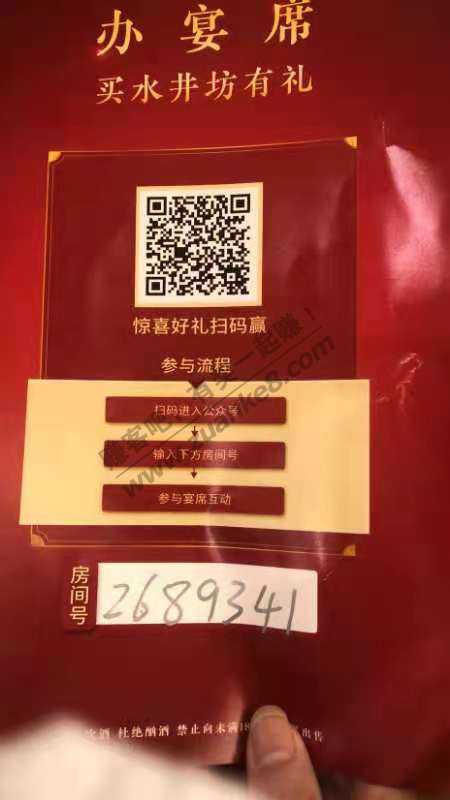 办宴席
买水井坊有礼
惊喜好礼扫码赢
参与流程
扫码进入公众号
输入下方房间号
参与宴席互动
房间号
2689341
酒 杜绝酗酒 禁止向未满18
出售
赚客吧
有奖一起赚！
www.zuanke8.com